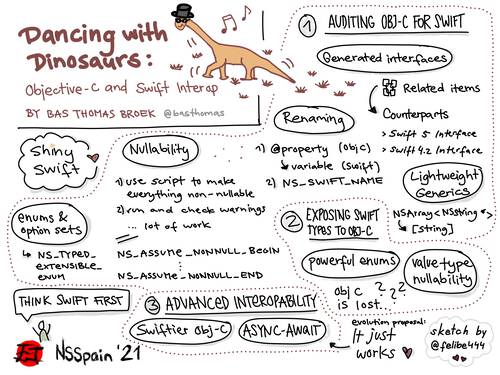 Dancing with
Dinosaurs:
Objective-C and Swift Interop
BY BAS THOMAS BROEK @basthomas
1 AUDITING OBJ-C FOR SWIFT
Generated interfaces
Related items
Counterparts
> Swift 5 Interface
> Swift 4.2 Interface
Renaming
1) @property (objc)
variable (swift)
2) NS_SWIFT_NAME
Lightweight
Generics
NSArray<NSString *>
[string]
Nullability
1) use script to make
everything non-nullable
2) run and check warnings
... lot of work
NS_ASSUME_NONNULL_BEGIN
:
NS_ASSUME_NONNULL_END
Shiny
Swift
enums &
option sets
NS_TYPED_
EXTENSIBLE_
ENUM
2 EXPOSING SWIFT
TYPES TO OBJ-C
powerful enums
value type
nullability
Obj C ? ? ?
is lost...
THINK SWIFT FIRST
3 ADVANCED INTEROPABILITY
Swiftier Obj-C
ASYNC-AWAIT
evolution proposal:
It just
works
NSSpain '21
sketch by
@felibe444